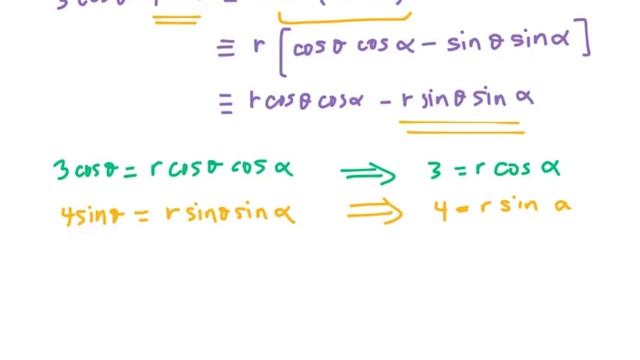 ≡ r [cosθ cosα − sinθ sinα]
≡ r cosθ cosα − r sinθ sin α
3 cosθ = r cosθ cos α ⟹ 3 = r cos α
4 sinθ = r sinθ sin α ⟹ 4 = r sin a